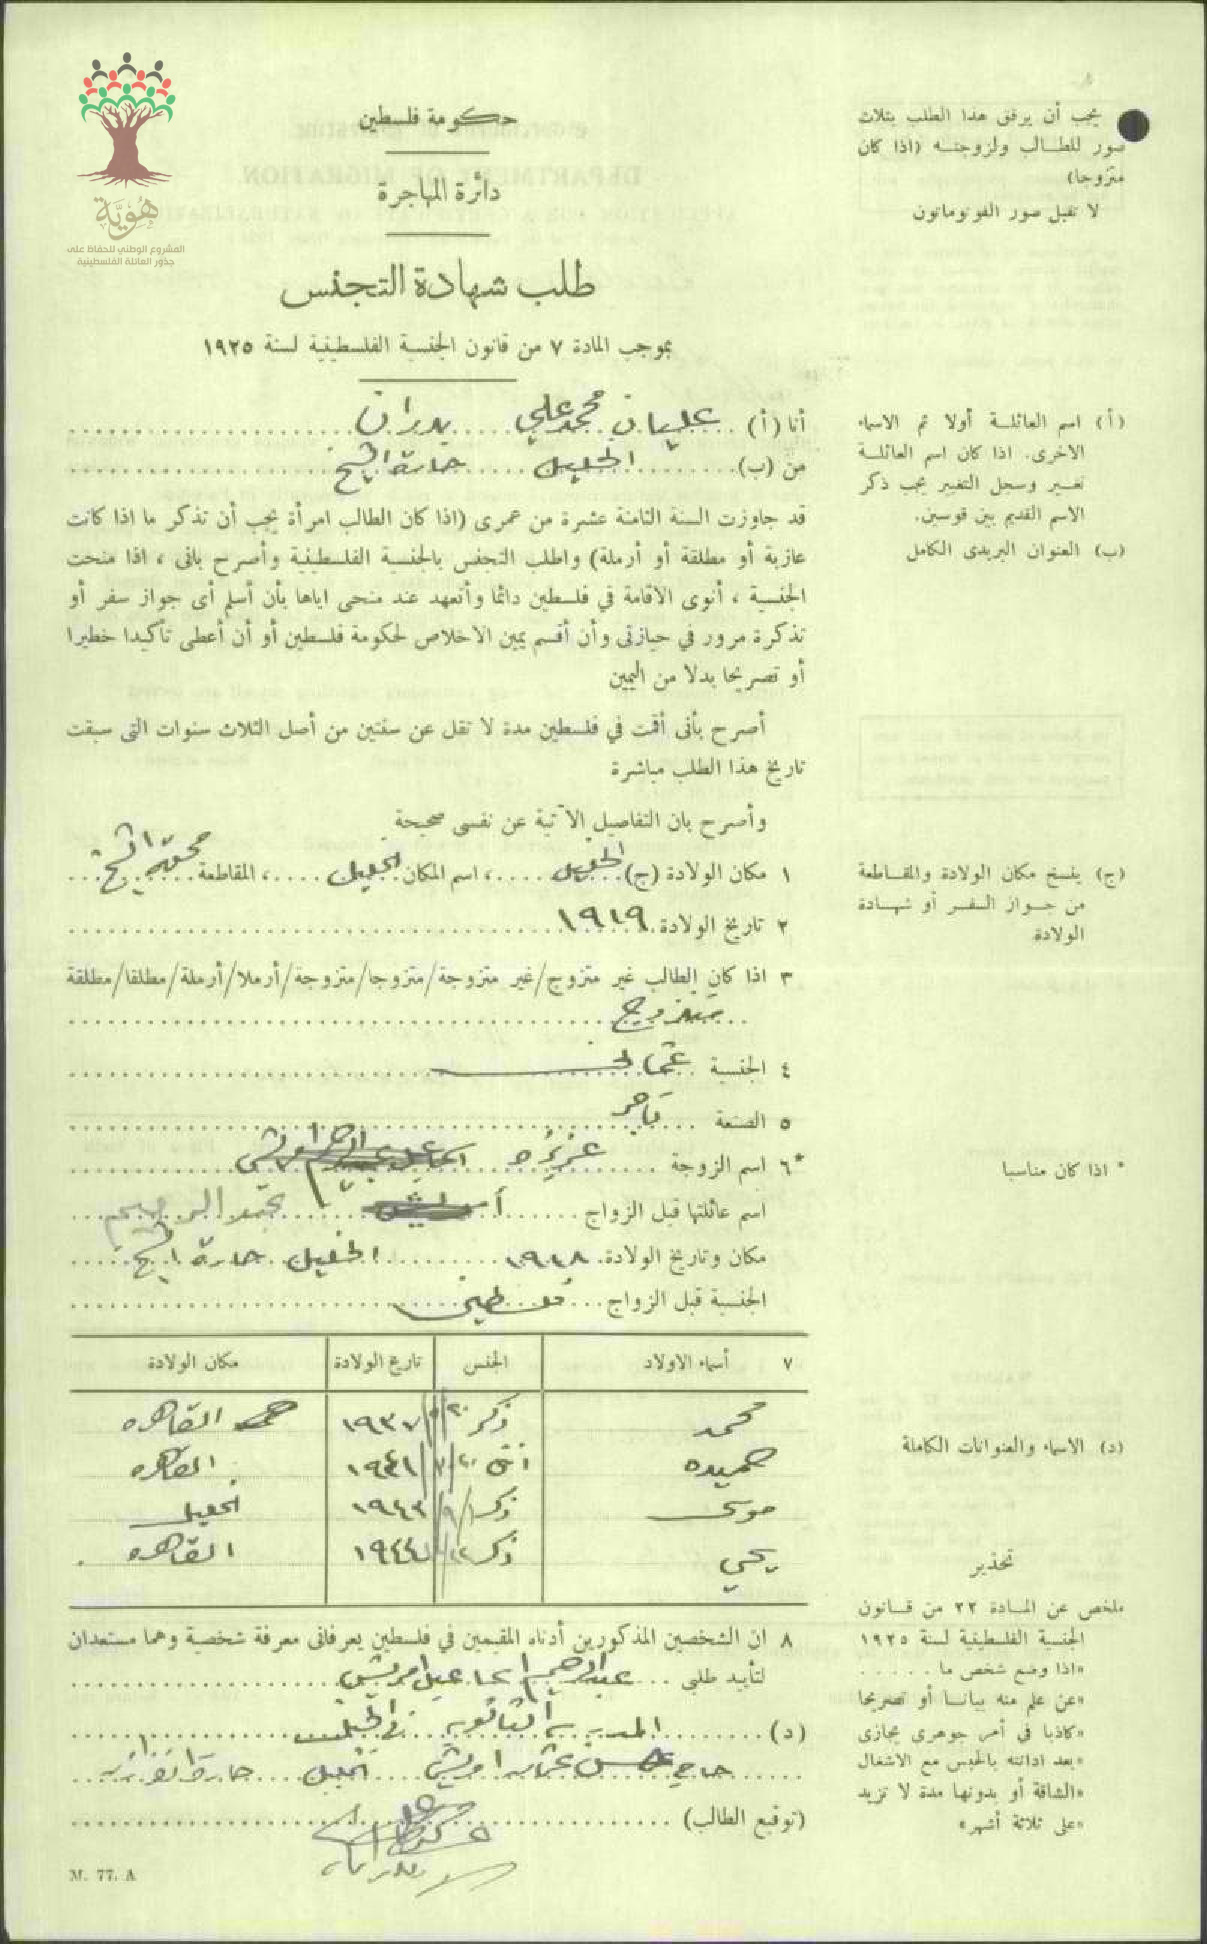 هُويّة
المشروع الوطني للحفاظ على
جذور العائلة الفلسطينية
حكومة فلسطين
دائرة المهاجرة
طلب شهادة التجنس
بموجب المادة ٧ من قانون الجنسية الفلسطينية لسنة ١٩٢٥
يجب أن يرفق هذا الطلب بثلاث
صور للطالب ولزوجته (اذا كان
متزوجا)
لا تقبل صور الفوتوماتون
أنا (أ) عليان محمد علي بدران
من (ب) الخليل حارة الشيخ
قد جاوزت السنة الثامنة عشرة من عمرى (اذا كان الطالب امرأة يجب أن تذكر ما اذا كانت
عازبة أو مطلقة أو أرملة) واطلب التجنس بالجنسية الفلسطينية وأصرح بانى ، اذا منحت
الجنسية ، أنوى الاقامة في فلسطين دائما وأتعهد عند منحى اياها بأن أسلم أى جواز سفر أو
تذكرة مرور في حيازتى وأن أقسم يمين الاخلاص لحكومة فلسطين أو أن أعطى تأكيدا خطيرا
أو تصريحا بدلا من اليمين
أصرح بأنى أقمت في فلسطين مدة لا تقل عن سنتين من أصل الثلاث سنوات التى سبقت
تاريخ هذا الطلب مباشرة
وأصرح بان التفاصيل الآتية عن نفسى صحيحة
١ مكان الولادة (ج) الخليل ، اسم المكان الخليل ، المقاطعة محلة الشيخ
٢ تاريخ الولادة ١٩١٩
٣ اذا كان الطالب غير متزوج/غير متزوجة/متزوجا/متزوجة/أرملا/أرملة/مطلقا/مطلقة
متزوج
٤ الجنسية
٥ الصنعة تاجر
*٦ اسم الزوجة عزيزه
اسم عائلتها قبل الزواج عبد الرحيم
مكان وتاريخ الولادة ١٩١٨ الخليل حارة الشيخ
الجنسية قبل الزواج فلسطيني
٧ أسماء الاولاد الجنس تاريخ الولادة مكان الولادة
محمد ذكر ١٩٣٧ القاهره
حميده انثى ١٩٤١ القاهره
موسى ذكر ١٩٤٣ الخليل
يحيى ذكر ١٩٤٤ القاهره
٨ ان الشخصين المذكورين أدناه المقيمين في فلسطين يعرفانى معرفة شخصية وهما مستعدان
لتأييد طلبى عبد الرحيم
(د) المدرسة الثانوية في الخليل
حاج الخليل حارة
(توقيع الطالب)
M. 77. A
(أ) اسم العائلة أولا ثم الاسماء
الاخرى. اذا كان اسم العائلة
تغير وسجل التغيير يجب ذكر
الاسم القديم بين قوسين.
(ب) العنوان البريدى الكامل
(ج) ينسخ مكان الولادة والمقاطعة
من جواز السفر أو شهادة
الولادة
* اذا كان مناسبا
(د) الاسماء والعنوانات الكاملة
تحذير
ملخص عن المادة ٢٢ من قانون
الجنسية الفلسطينية لسنة ١٩٢٥
«اذا وضع شخص ما . . . . .
«عن علم منه بيانا أو تصريحا
«كاذبا في أمر جوهرى يجازى
«بعد ادانته بالحبس مع الاشغال
«الشاقة أو بدونها مدة لا تزيد
«على ثلاثة أشهر»